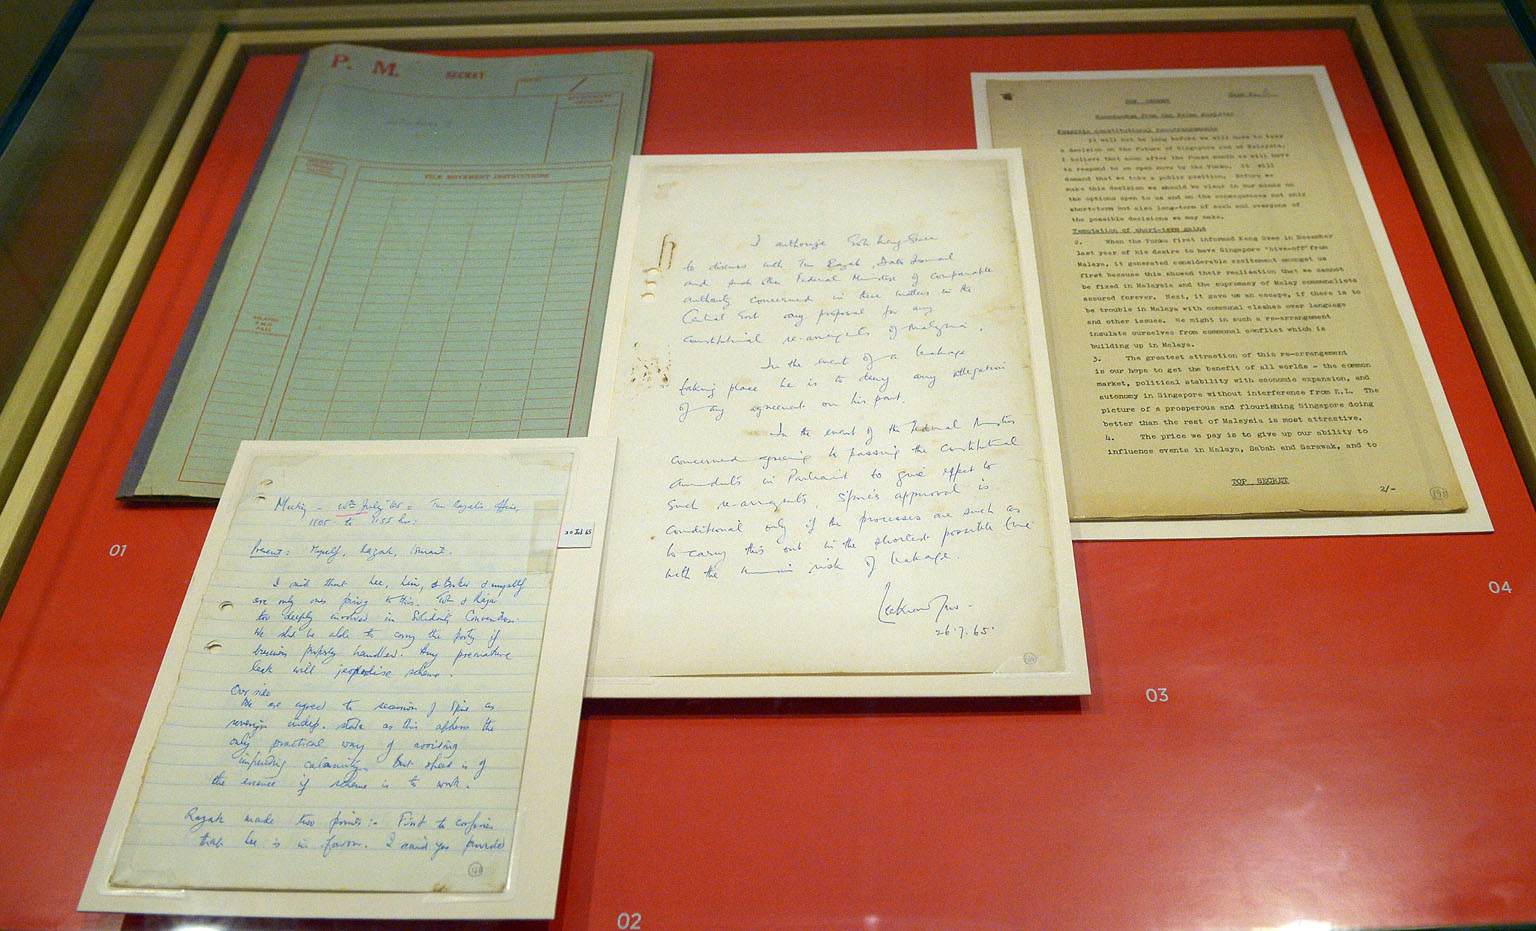 P. M. SECRET
FILE MOVEMENT INSTRUCTIONS
01
Meeting – 20th July '65 = Tun Razak's office,
1105 to 1155 hrs:
20 Jul 65
Present: Myself, Razak, Ismail.
I said that Lee, Lim, Barker & myself
are only ones privy to this. Toh & Raja
too deeply involved in Solidarity Convention.
We shd be able to carry the party if
properly handled. Any premature
leak will jeopardise scheme.
Our side
We are agreed to secession of S'pore as
sovereign indep. state as this affords the
only practical way of avoiding
impending calamity. But speed is of
the essence if scheme is to work.
Razak made two points:- First to confirm
that Lee is in favour. I said yes provided
02
I authorise Goh Keng Swee
to discuss with Tun Razak, Dato Ismail
and such other Federal Ministers of comparable
authority concerned in these matters in the
Central Govt any proposal for any
constitutional re-arrangements of Malaysia.
In the event of a leakage
taking place he is to deny any allegation
of any agreement on his part.
In the event of the Federal Ministers
concerned agreeing to passing the constitutional
amendments in Parliament to give effect to
such re-arrangements, S'pore's approval is
conditional only if the processes are such as
to carry this out in the shortest possible time
with the minimum risk of leakage
26.7.65.
03
TOP SECRET
Memorandum from the Prime Minister
constitutional rearrangements
It will not be long before we will have to take
a decision on the future of Singapore out of Malaysia.
I believe that soon after the Tunku we will have
to respond to an open move by the Tunku. It will
demand that we take a public position. Before we
make this decision we should be clear in our minds on
the options open to us and on the consequences not only
short-term but also long-term of each and everyone of
the possible decisions we may make.
Temptation of short-term gains
2. When the Tunku first informed Keng Swee in December
last year of his desire to have Singapore "hive-off" from
Malaya, it generated considerable excitement amongst us
first because this showed their realisation that we cannot
be fixed in Malaysia and the supremacy of Malay communalists
assured forever. Next, it gave us an escape, if there is to
be trouble in Malaya with communal clashes over language
and other issues. We might in such a re-arrangement
insulate ourselves from communal conflict which is
building up in Malaya.
3. The greatest attraction of this re-arrangement
is our hope to get the benefit of all worlds - the common
market, political stability with economic expansion, and
autonomy in Singapore without interference from K.L. The
picture of a prosperous and flourishing Singapore doing
better than the rest of Malaysia is most attractive.
4. The price we pay is to give up our ability to
influence events in Malaya, Sabah and Sarawak, and to
TOP SECRET
2/-
04